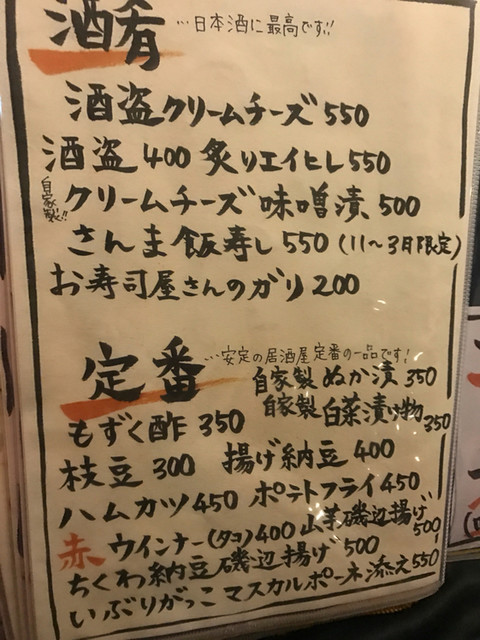 酒肴 …日本酒に最高です!!
酒盗クリームチーズ 550
酒盗 400 炙りエイヒレ 550
自家製!! クリームチーズ味噌漬 500
さんま飯寿し 550 (11～3月限定)
お寿司屋さんのガリ 200
定番 …安定の居酒屋定番の一品です!
自家製ぬか漬 350
もずく酢 350 自家製白菜漬け物 350
枝豆 300 揚げ納豆 400
ハムカツ 450 ポテトフライ 450
赤ウインナー(タコ) 400 山芋磯辺揚げ 500
ちくわ納豆磯辺揚げ 500
いぶりがっこマスカルポーネ添え 550